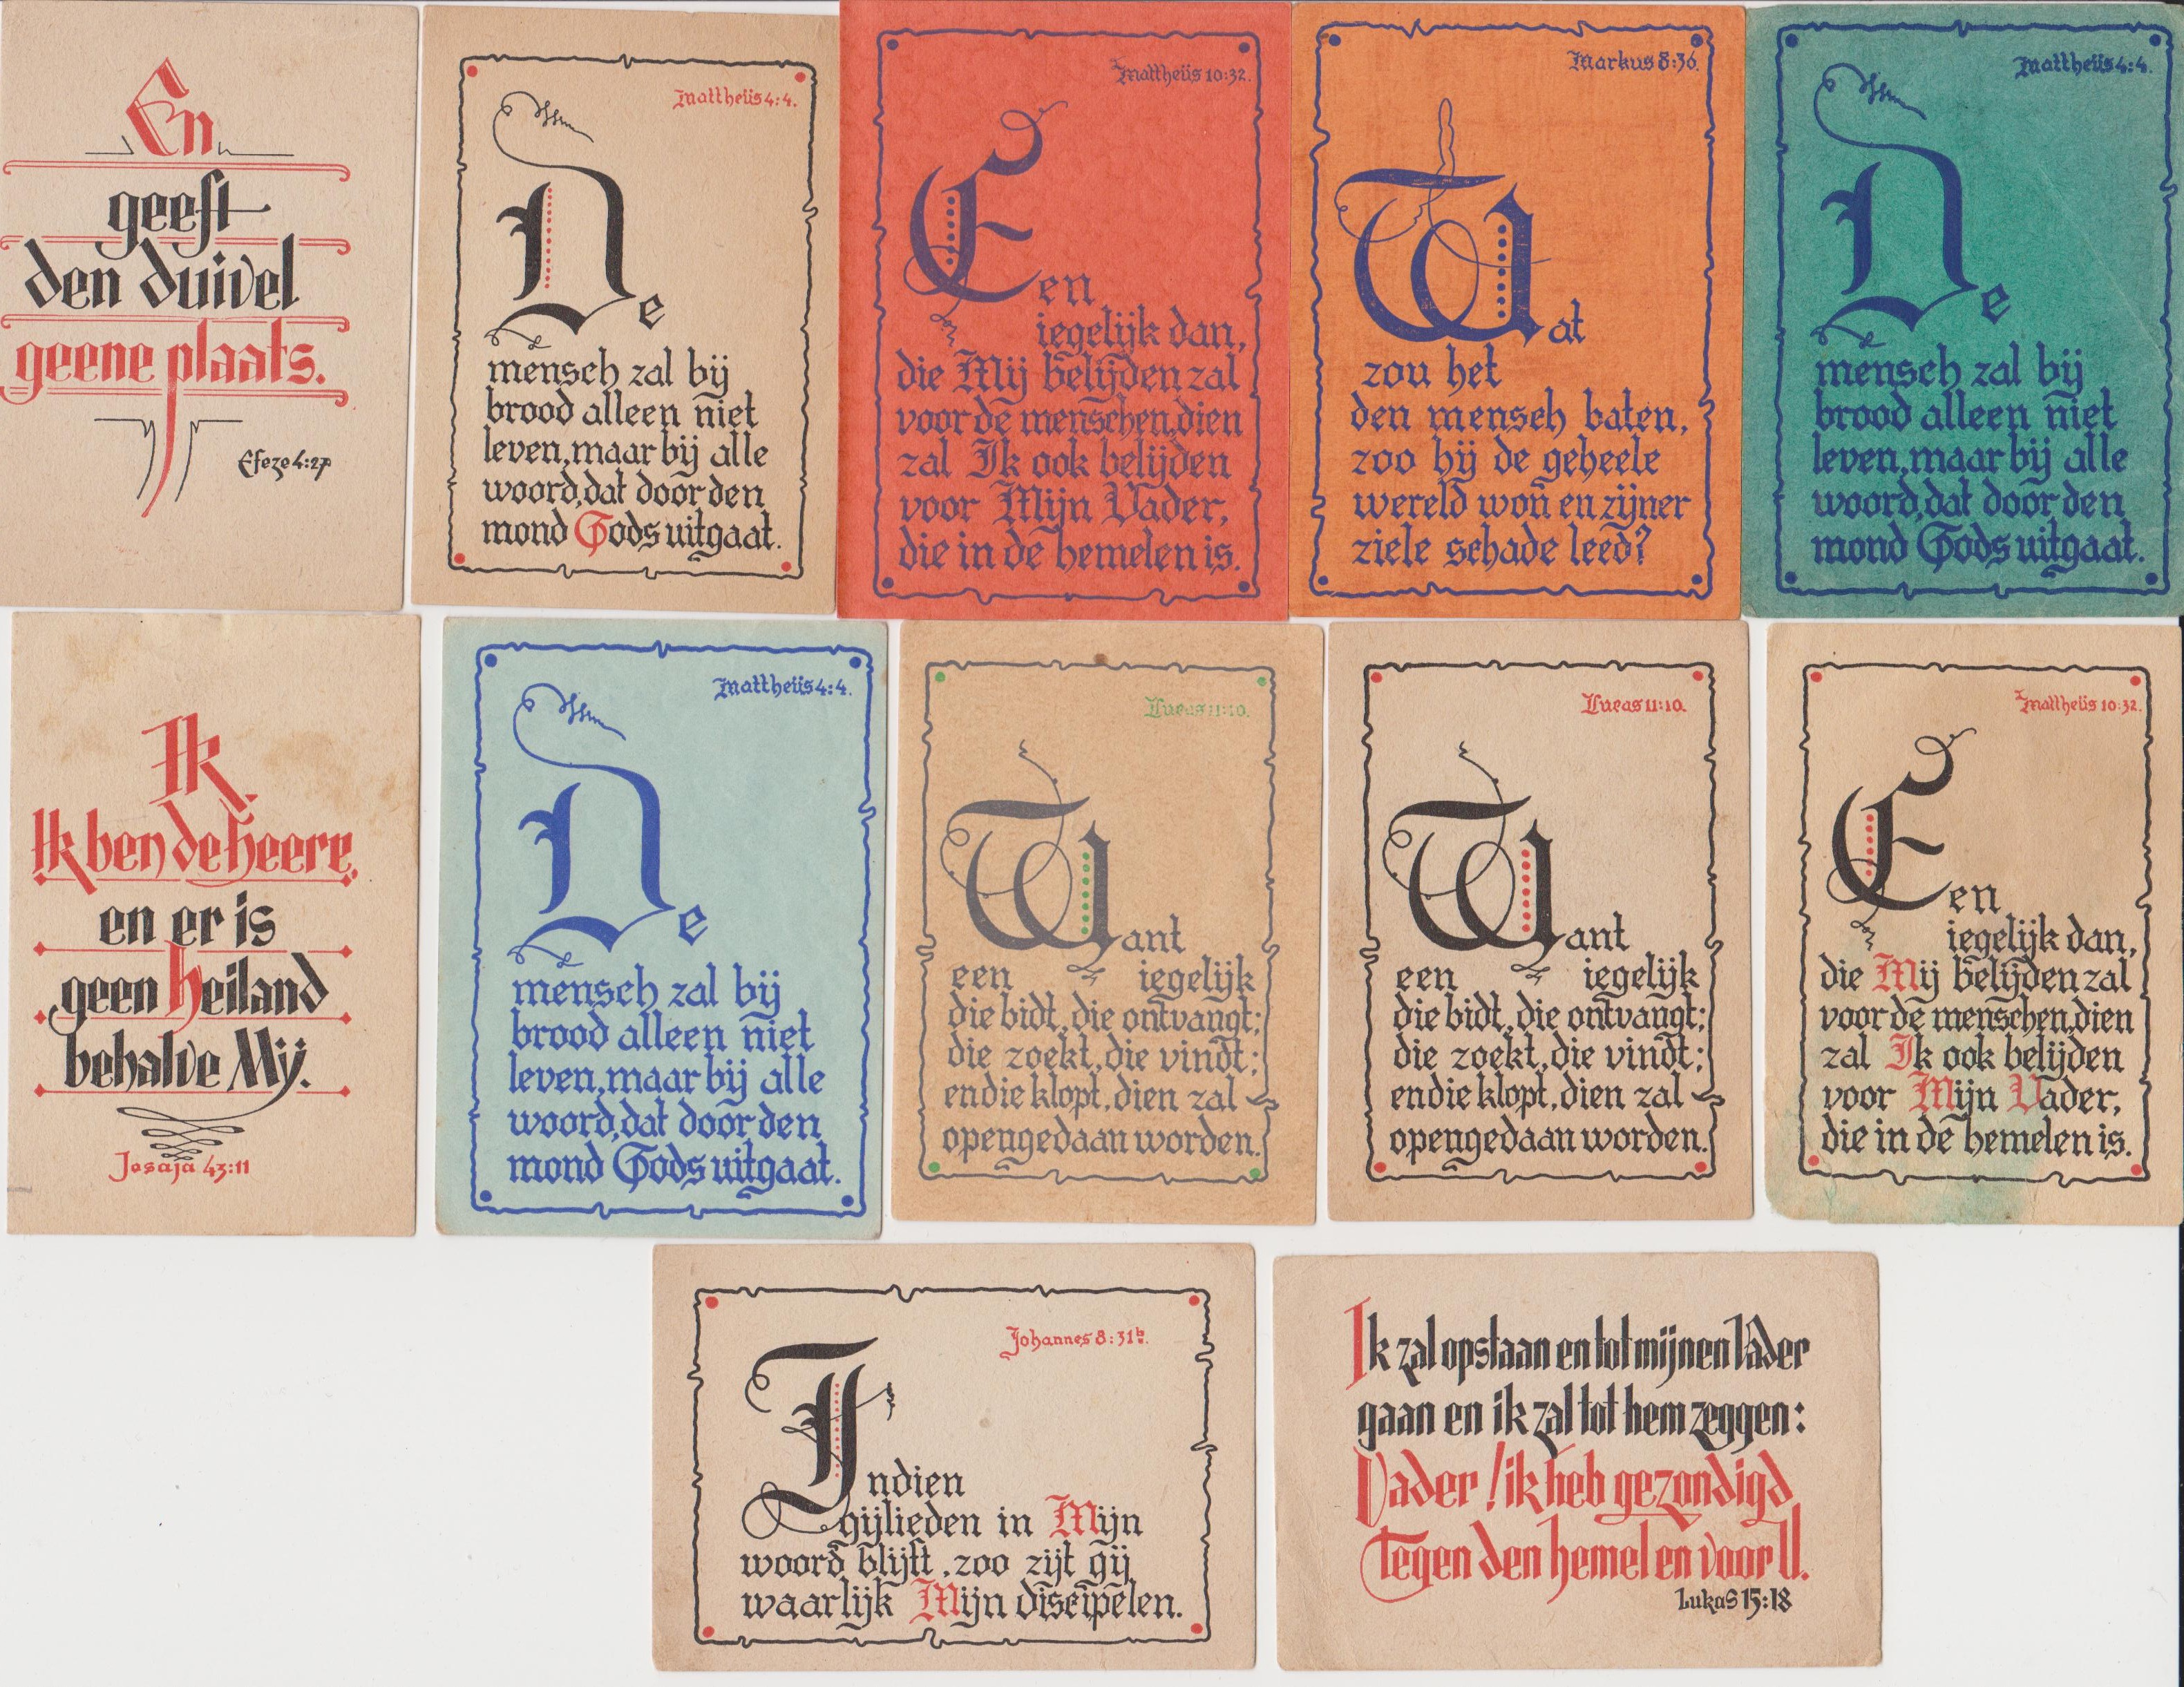 En
geeft
den duivel
geene plaats.
Efeze 4:27
Mattheüs 4:4.
De
mensch zal bij
brood alleen niet
leven, maar bij alle
woord, dat door den
mond Gods uitgaat.
Mattheüs 10:32.
Een
iegelijk dan,
die Mij belijden zal
voor de menschen, dien
zal Ik ook belijden
voor Mijn Vader,
die in de hemelen is.
Markus 8:36.
Wat
zou het
den mensch baten,
zoo hij de geheele
wereld won en zijner
ziele schade leed?
Mattheüs 4:4.
De
mensch zal bij
brood alleen niet
leven, maar bij alle
woord, dat door den
mond Gods uitgaat.
Ik,
Ik ben de Heere,
en er is
geen Heiland
behalve Mij.
Jesaja 43:11
Mattheüs 4:4.
De
mensch zal bij
brood alleen niet
leven, maar bij alle
woord, dat door den
mond Gods uitgaat.
Lucas 11:10.
Want
een iegelijk
die bidt, die ontvangt;
die zoekt, die vindt;
en die klopt, dien zal
opengedaan worden.
Lucas 11:10.
Want
een iegelijk
die bidt, die ontvangt;
die zoekt, die vindt;
en die klopt, dien zal
opengedaan worden.
Mattheüs 10:32.
Een
iegelijk dan,
die Mij belijden zal
voor de menschen, dien
zal Ik ook belijden
voor Mijn Vader,
die in de hemelen is.
Johannes 8:31b.
Indien
gijlieden in Mijn
woord blijft, zoo zijt gij
waarlijk Mijn discipelen.
Ik zal opstaan en tot mijnen Vader
gaan en ik zal tot hem zeggen:
Vader! ik heb gezondigd
Tegen den hemel en voor U.
Lukas 15:18